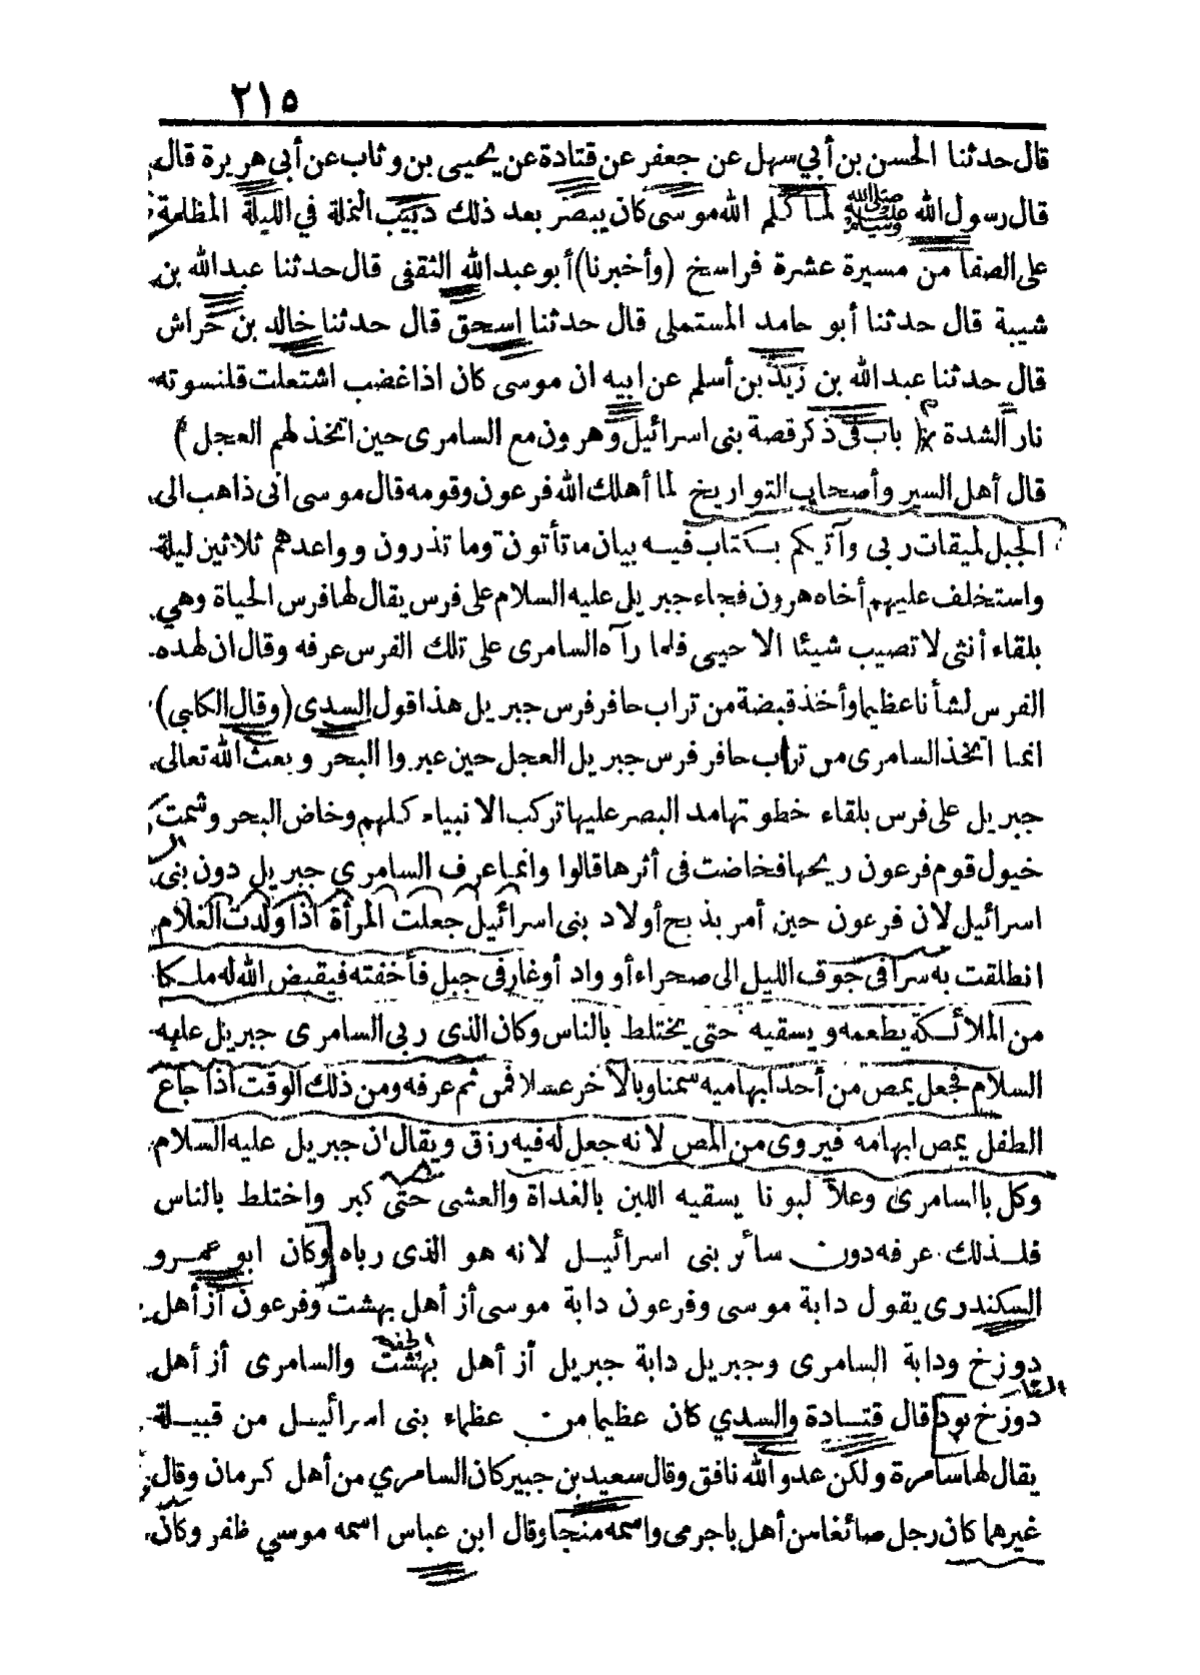 ٢١٥
قال حدثنا الحسن بن أبي سهل عن جعفر عن قتادة عن يحيى بن وثاب عن أبى هريرة قال
قال رسول الله صلى الله عليه وسلم لما كلم الله موسى كان يبصر بعد ذلك دبيب النملة في الليلة المظلمة
على الصفا من مسيرة عشرة فراسخ (وأخبرنا) أبو عبد الله الثقفى قال حدثنا عبد الله بن
شيبة قال حدثنا أبو حامد المستملى قال حدثنا اسحق قال حدثنا خالد بن خراش
قال حدثنا عبد الله بن زيد بن أسلم عن ابيه ان موسى كان اذا غضب اشتعلت قلنسوته
نار الشدة ( باب فى ذكر قصة بنى اسرائيل وهرون مع السامرى حين اتخذ لهم العجل )
قال أهل السير وأصحاب التواريخ لما أهلك الله فرعون وقومه قال موسى انى ذاهب الى
الجبل لميقات ربى وآتيكم بكتاب فيه بيان ما تأتون وما تذرون وواعدهم ثلاثين ليلة
واستخلف عليهم أخاه هرون فجاء جبريل عليه السلام على فرس يقال لها فرس الحياة وهي
بلقاء أنثى لا تصيب شيئا الا حيى فلما رآه السامرى على تلك الفرس عرفه وقال ان لهذه
الفرس لشأنا عظيما وأخذ قبضة من تراب حافر فرس جبريل هذا قول السدى (وقال الكلبى)
انما اتخذ السامرى من تراب حافر فرس جبريل العجل حين عبروا البحر وبعث الله تعالى
جبريل على فرس بلقاء خطوتها مد البصر عليها تركب الانبياء كلهم وخاض البحر وشمت
خيول قوم فرعون ريحها فخاضت فى أثرها قالوا وانما عرف السامرى جبريل دون بنى
اسرائيل لان فرعون حين أمر بذبح أولاد بنى اسرائيل جعلت المرأة اذا ولدت الغلام
انطلقت به سرا فى جوف الليل الى صحراء أو واد أو غار فى جبل فأخفته فيقبض الله له ملكا
من الملائكة يطعمه ويسقيه حتى يختلط بالناس وكان الذى ربى السامرى جبريل عليه
السلام فجعل يمص من أحد ابهاميه سمنا وبالآخر عسلا فمن ثم عرفه ومن ذلك الوقت اذا جاع
الطفل يمص ابهامه فيروى من المص لانه جعل له فيه رزق ويقال ان جبريل عليه السلام
وكل بالسامرى وعلا لبونا يسقيه اللبن بالغداة والعشى حتى كبر واختلط بالناس
فلذلك عرفه دون سائر بنى اسرائيل لانه هو الذى رباه وكان ابو عمرو
السكندرى يقول دابة موسى وفرعون دابة موسى أز أهل بهشت وفرعون أز أهل
دوزخ ودابة السامرى وجبريل دابة جبريل أز أهل بهشت والسامرى أز أهل
دوزخ بود قال قتادة والسدي كان عظيما من عظماء بنى اسرائيل من قبيلة
يقال لها سامرة ولكن عدو الله نافق وقال سعيد بن جبير كان السامري من أهل كرمان وقال
غيرهما كان رجل صائغا من أهل باجرمى واسمه منجا وقال ابن عباس اسمه موسي ظفر وكان